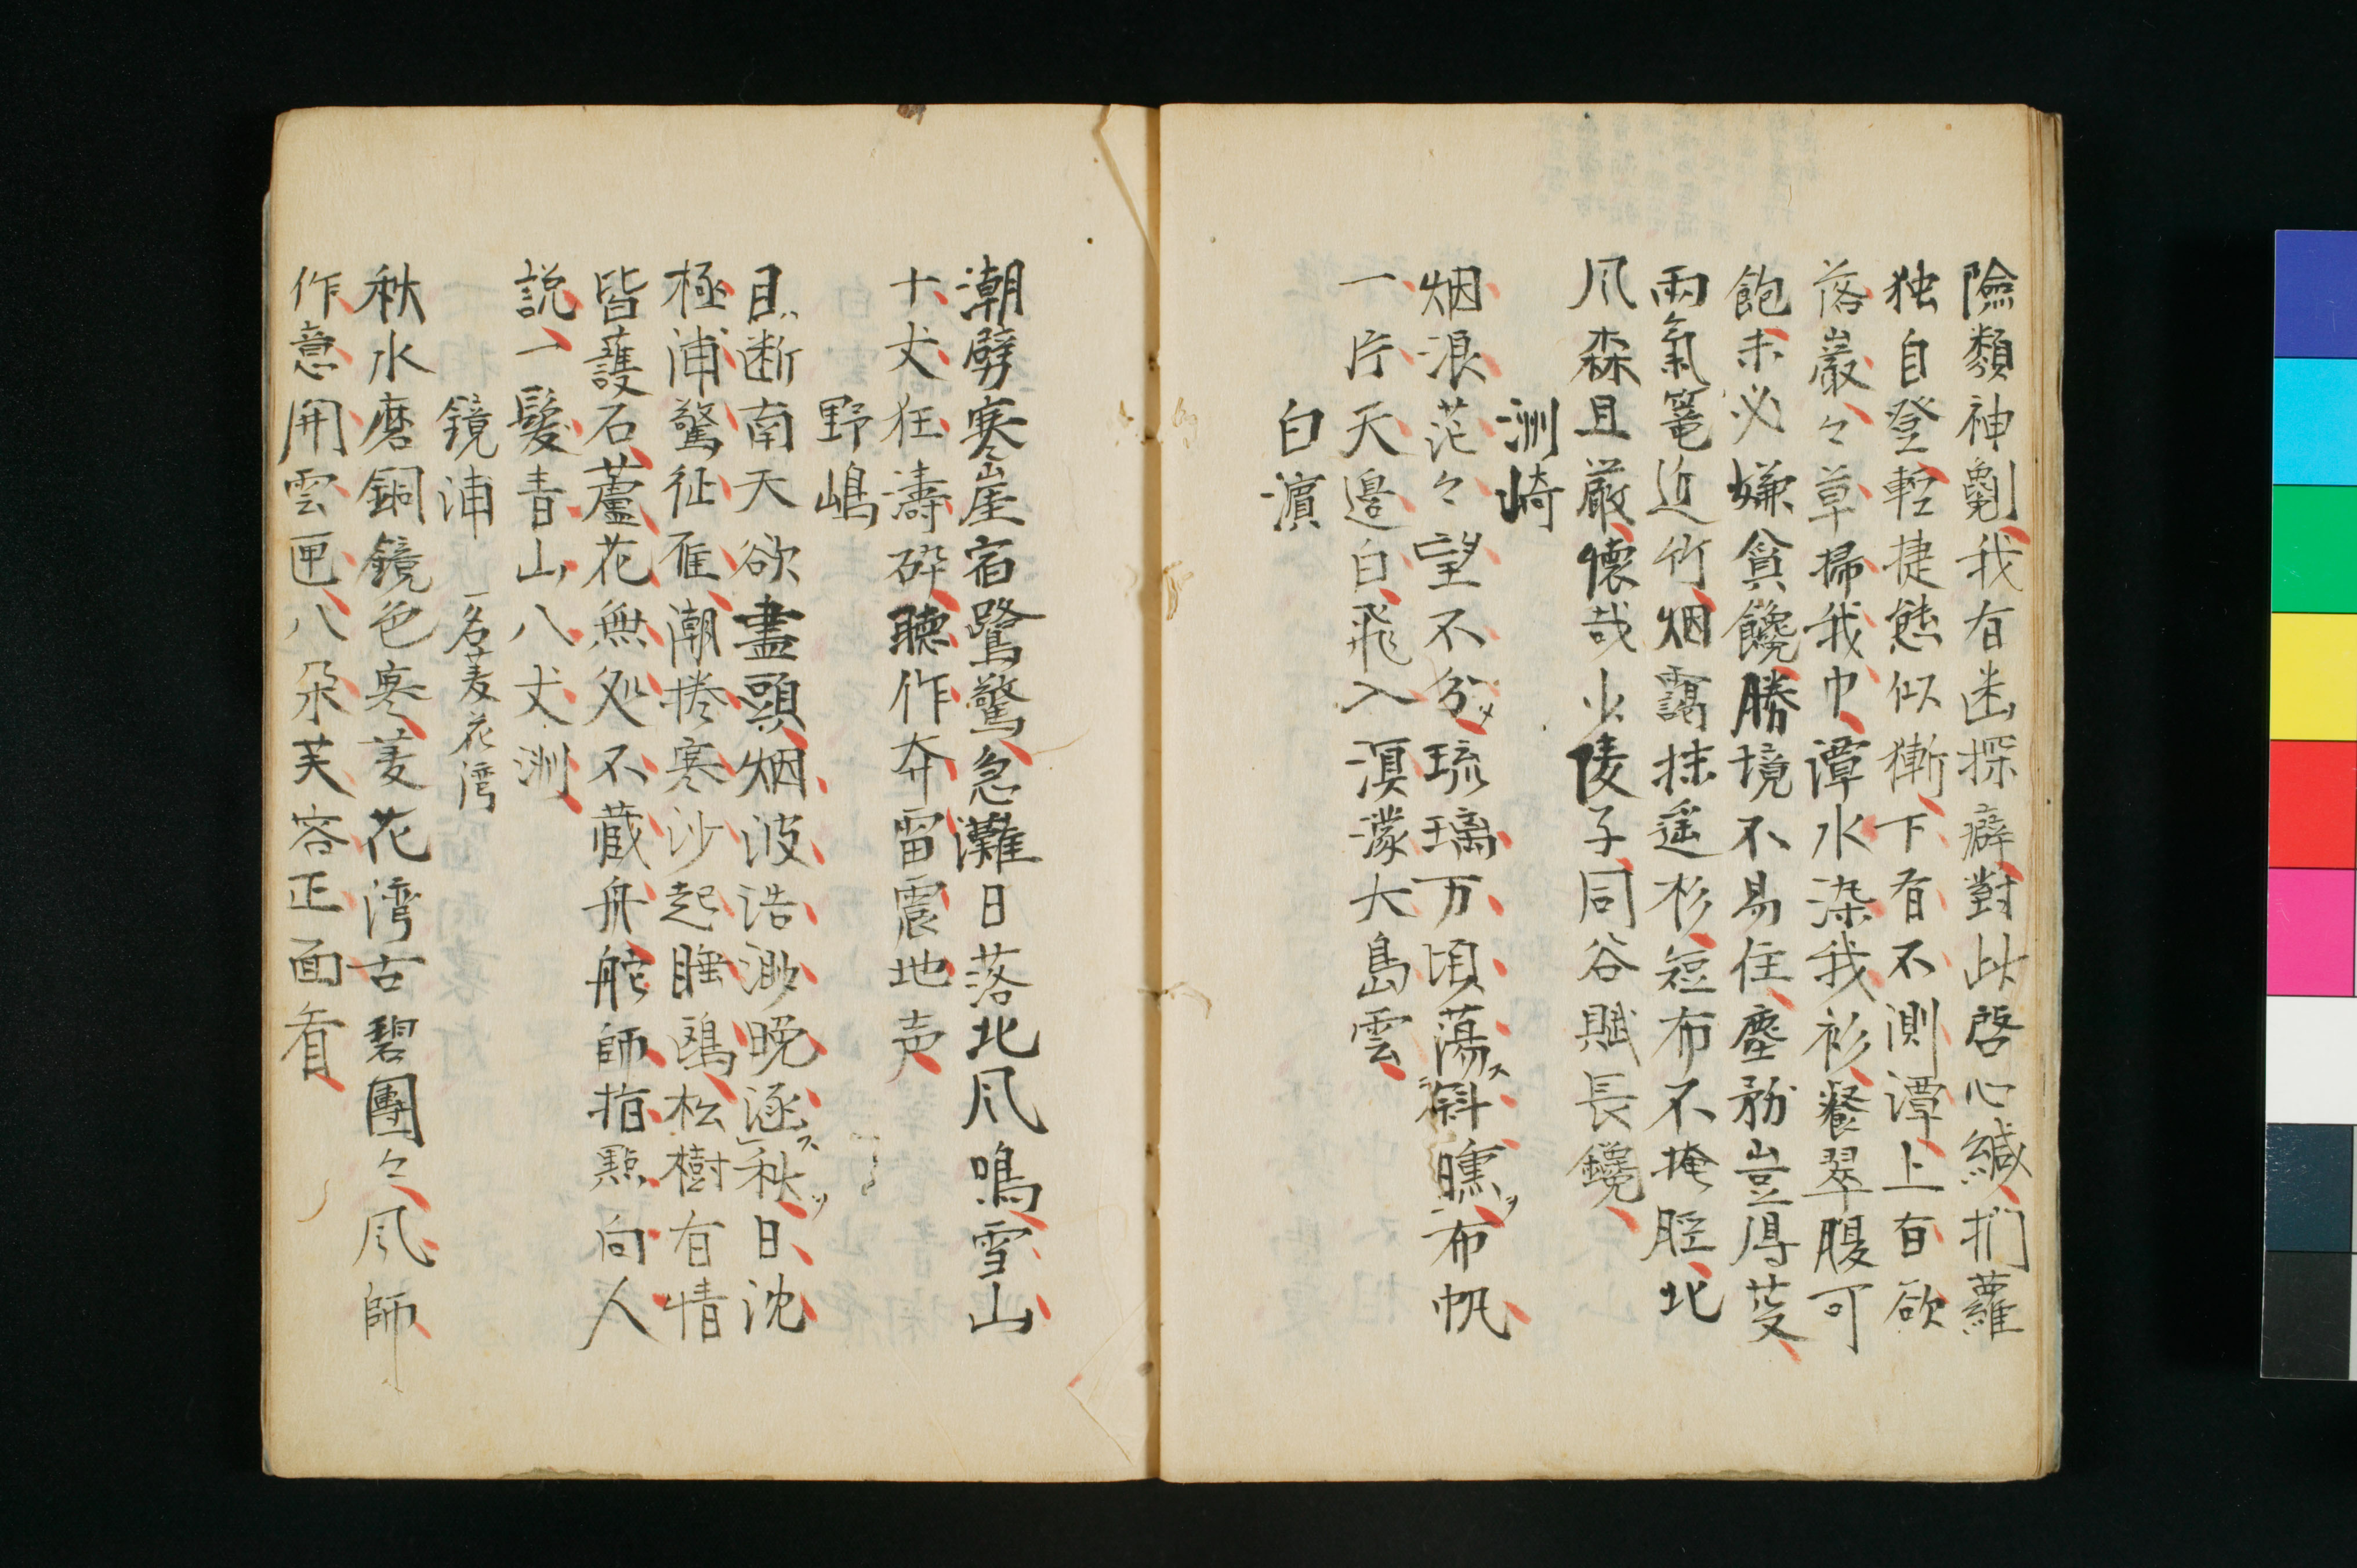 險類神劖我有幽探癖對此啓心緘捫蘿
独自登輕捷態似獑下有不測潭上有欲
落巖々草掃我巾潭水染我衫餐翠腹可
飽未必嫌貧饞勝境不易住塵務豈得芟
雨氣篭近竹烟靄抹遥杉短布不掩脛北
风森且嚴懐哉少陵子同谷賦長鑱
洲崎
烟浪茫々望不分メ琉璃万頃蕩ス斜曛ヲ布帆
一片天邉白飛入溟濛大島雲
白濵
潮劈寒崖宿鷺驚急灘日落北风鳴雪山
十丈狂濤砕聴作奔雷震地声
野嶋
目断南天欲盡頭烟波浩渺晩涵ス秋ヲ日沈
極浦驚征雁潮捲寒沙起睡鷗松樹有情
皆護石蘆花無処不蔵舟舵師指點向人
説一髪青山八丈洲
鏡浦 一名菱花湾
秋水磨銅鏡色寒菱花湾古碧團々风師
作意開雲匣八朶芙容正面看